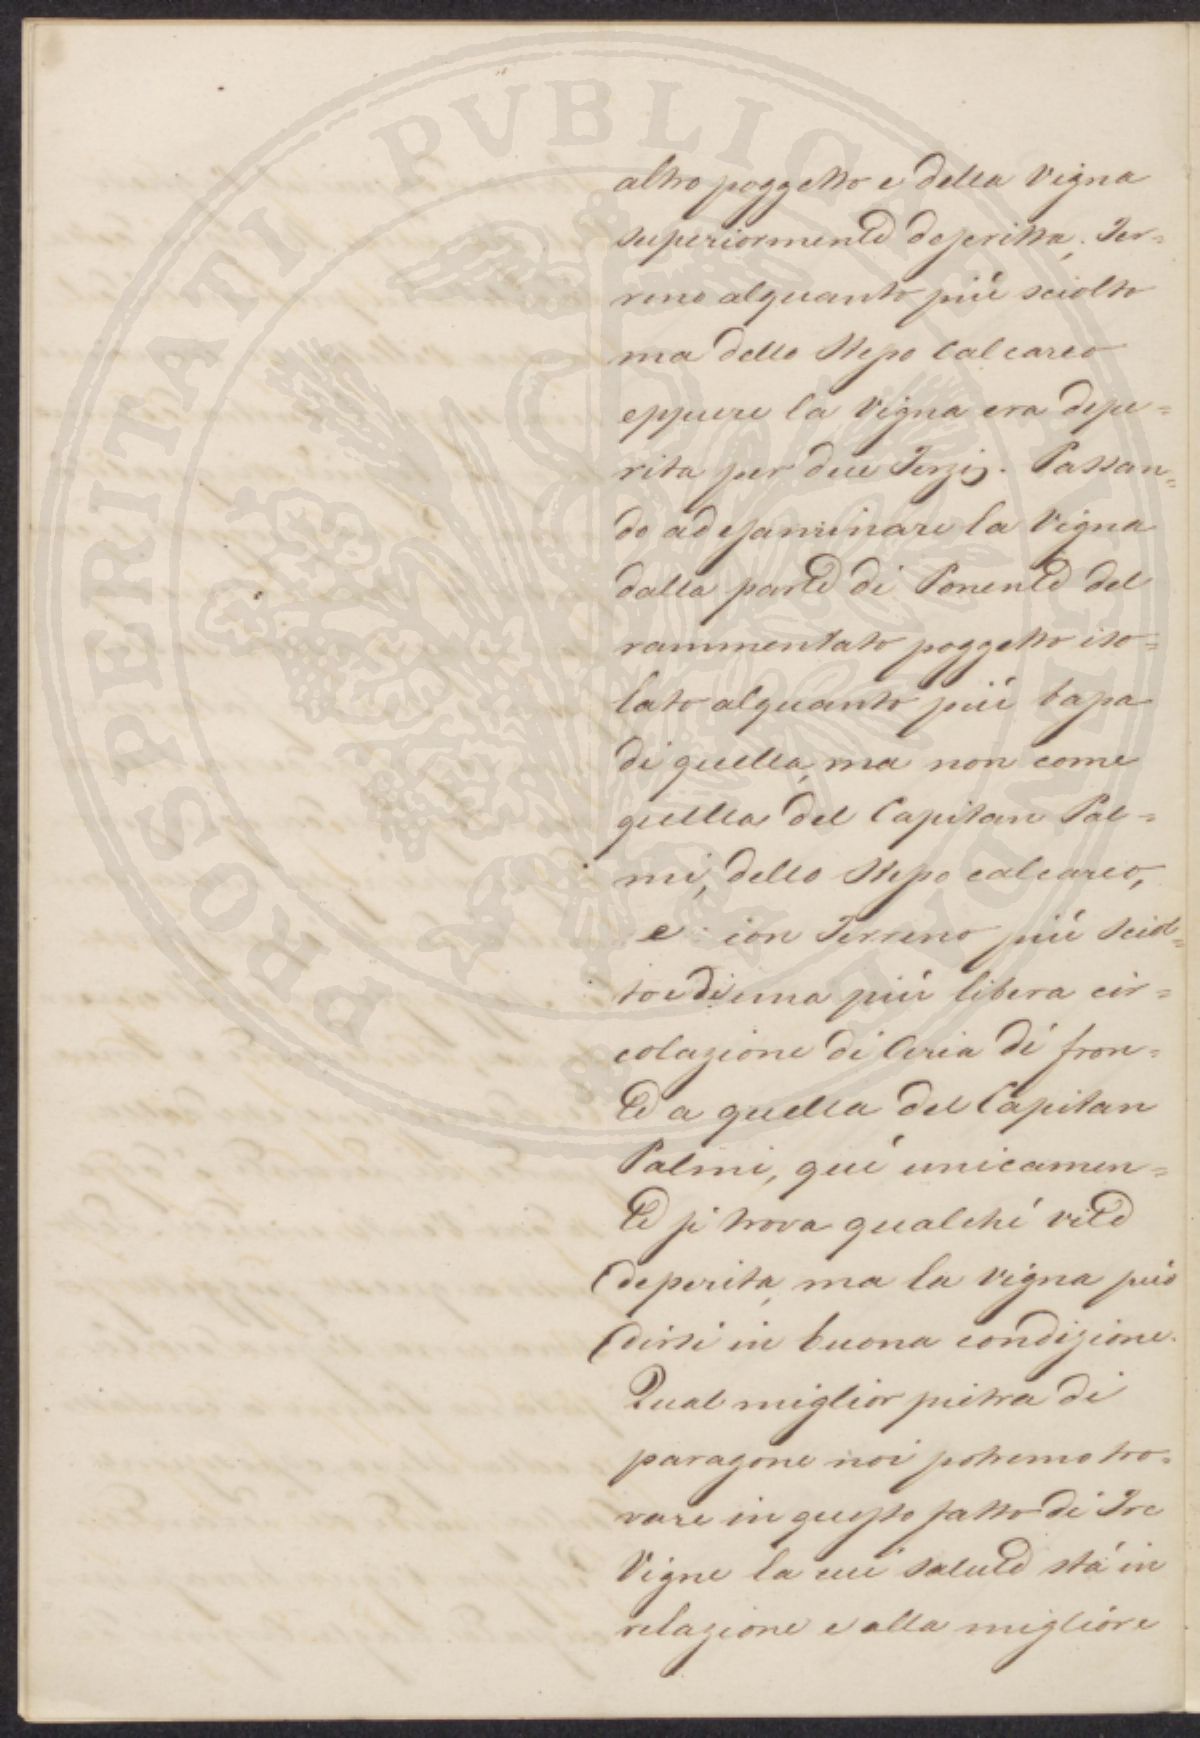 PROSPERITATI PVBLICAE AVGENDAE
altro poggetto e della Vigna
superiormente descritta. Ter=
reno alquanto più sciolto
ma dello stesso calcareo
eppure la Vigna era depe=
rita per due Terzi. Passan=
do ad esaminare la Vigna
dalla parte di Ponente del
rammentato poggetto iso=
lato alquanto più bassa
di quella, ma non come
quella del Capitan Pal=
mi, dello stesso calcareo,
e con Terreno più sciol=
to e di una più libera cir=
colazione di Aria di fron=
te a quella del Capitan
Palmi, quì unicamen=
te si trova qualche vite
deperita, ma la vigna può
dirsi in buona condizione.
Qual miglior pietra di
paragone noi potremo tro=
vare in questo fatto di Tre
Vigne la cui salute stá in
relazione e alla migliore